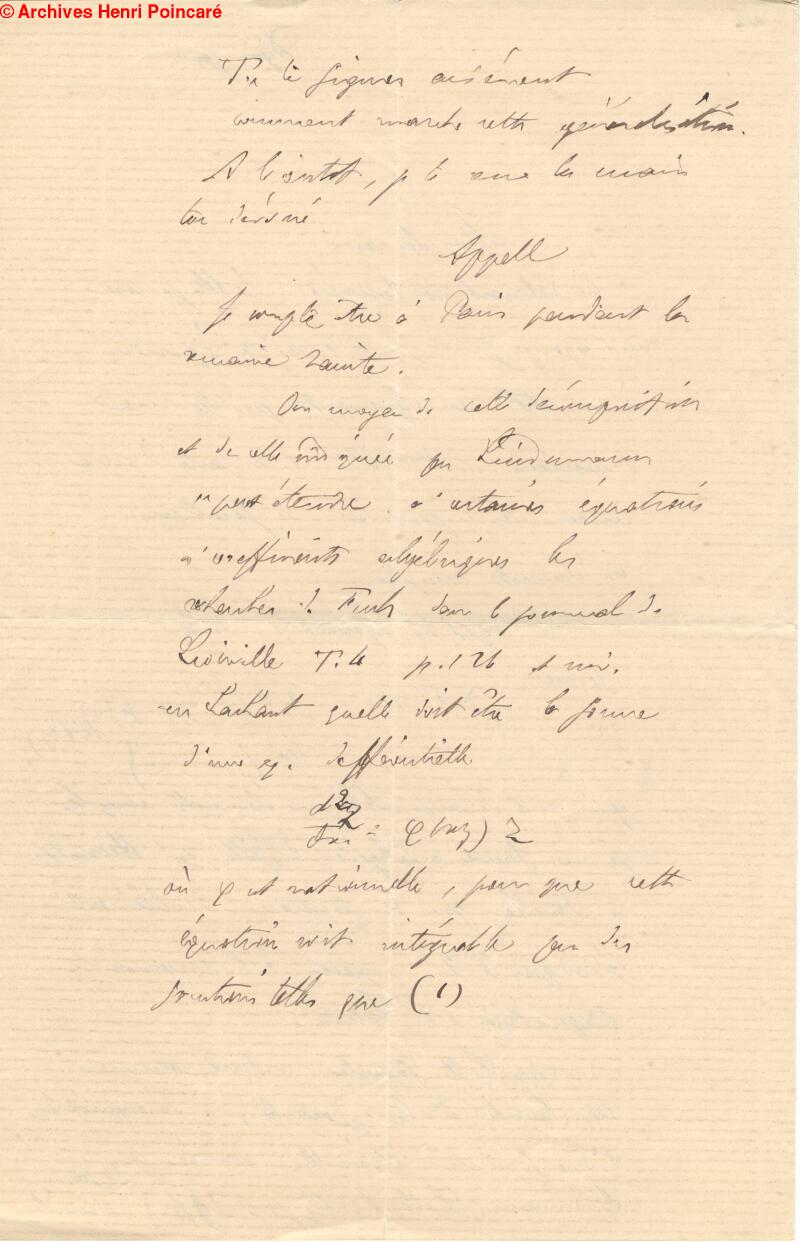 © Archives Henri Poincaré
Tu te figures aisément
comment marche cette généralisation.
A bientôt, je te serre les mains
ton dévoué
Appell
Je compte être à Paris pendant la
semaine sainte.
Au moyen de cette décomposition
et de celle indiquée par Lindemann
on peut étendre à certaines équations
à coefficients algébriques les
recherches de Fuchs dans le journal de
Liouville T. 4 p. 126 et suiv.
en cherchant quelle doit être la forme
d'une eq. différentielle
d²z/dx² = φ(xy) z
où φ est rationnelle, pour que cette
équation soit intégrable par des
fonctions telles que (1)